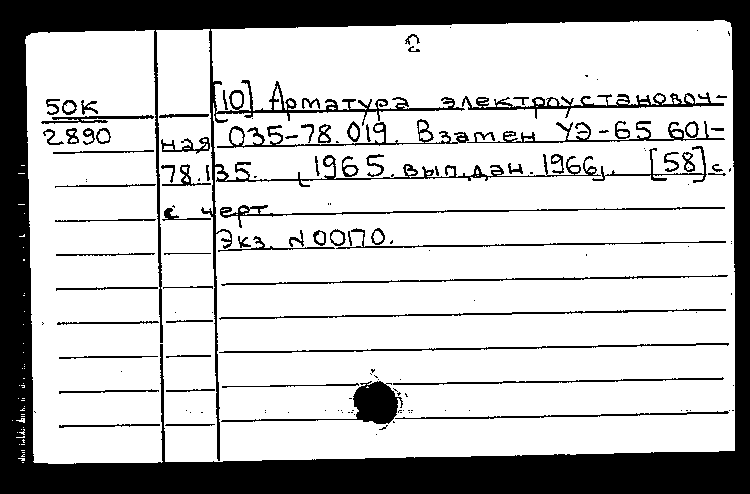 2
50К [10] Арматура электроустановоч-
2890 ная 035-78.019. Взамен УЭ-65 601-
78.135. [1965. вып.дан. 1966]. [58] с.
с черт.
Экз. N00170.